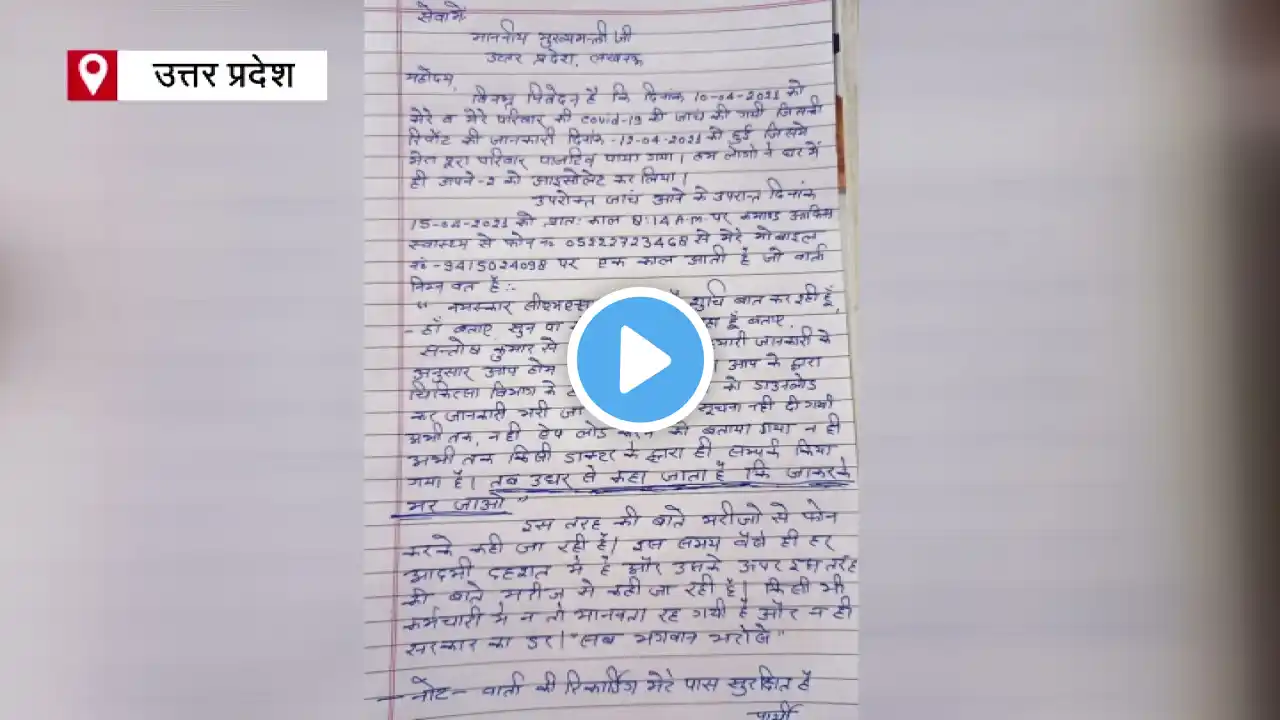 उत्तर प्रदेश
सेवामें
माननीय मुख्यमन्त्री जी
उत्तर प्रदेश, लखनऊ
महोदय,
विनम्र निवेदन है कि दिनांक 10-04-2021 को
मेरे व मेरे परिवार की covid-19 की जांच की गयी जिसकी
रिपोर्ट की जानकारी दिनांक-12-04-2021 को हुई जिसमे
मेरा पूरा परिवार पाजटिव पाया गया। हम लोगो ने घर में
ही अपने-2 को आइसोलेट कर लिया।
उपरोक्त जांच आने के उपरान्त दिनांक
15-04-2021 को प्रातः काल 8:14 A.m पर कमाण्ड आफिस
स्वास्थ्य से फोन नं० 05222723468 से मेरे मोबाइल
नं०-9415024098 पर एक काल आती है जो वार्ता
निम्न वत है:-
" नमस्कार शुचि बात कर रही हूँ,
- हाँ बताए, सुन पा हूँ बताए.
सन्तोष कुमार से जानकारी के
अनुसार आप होम आप के द्वारा
चिकित्सा विभाग के को डाउनलोड
कर जानकारी भरी जा सूचना नही दी गयी
अभी तक, न ही ऐप लोड करने को बताया गया न ही
अभी तक किसी डाक्टर के द्वारा ही सम्पर्क किया
गया है। तब उधर से कहा जाता है कि जाकरके
मर जाओ"
इस तरह की बाते मरीजो से फोन
करके कही जा रही है। इस समय वैसे ही हर
आदमी दहशत मे है और उसके ऊपर इस तरह
की बाते मरीज से कही जा रही है। किसी भी
कर्मचारी मे न तो मानवता रह गयी है और न ही
सरकार का डर। "सब भगवान भरोसे"
- नोट- वार्ता की रिकार्डिंग मेरे पास सुरक्षित है
प्रार्थी